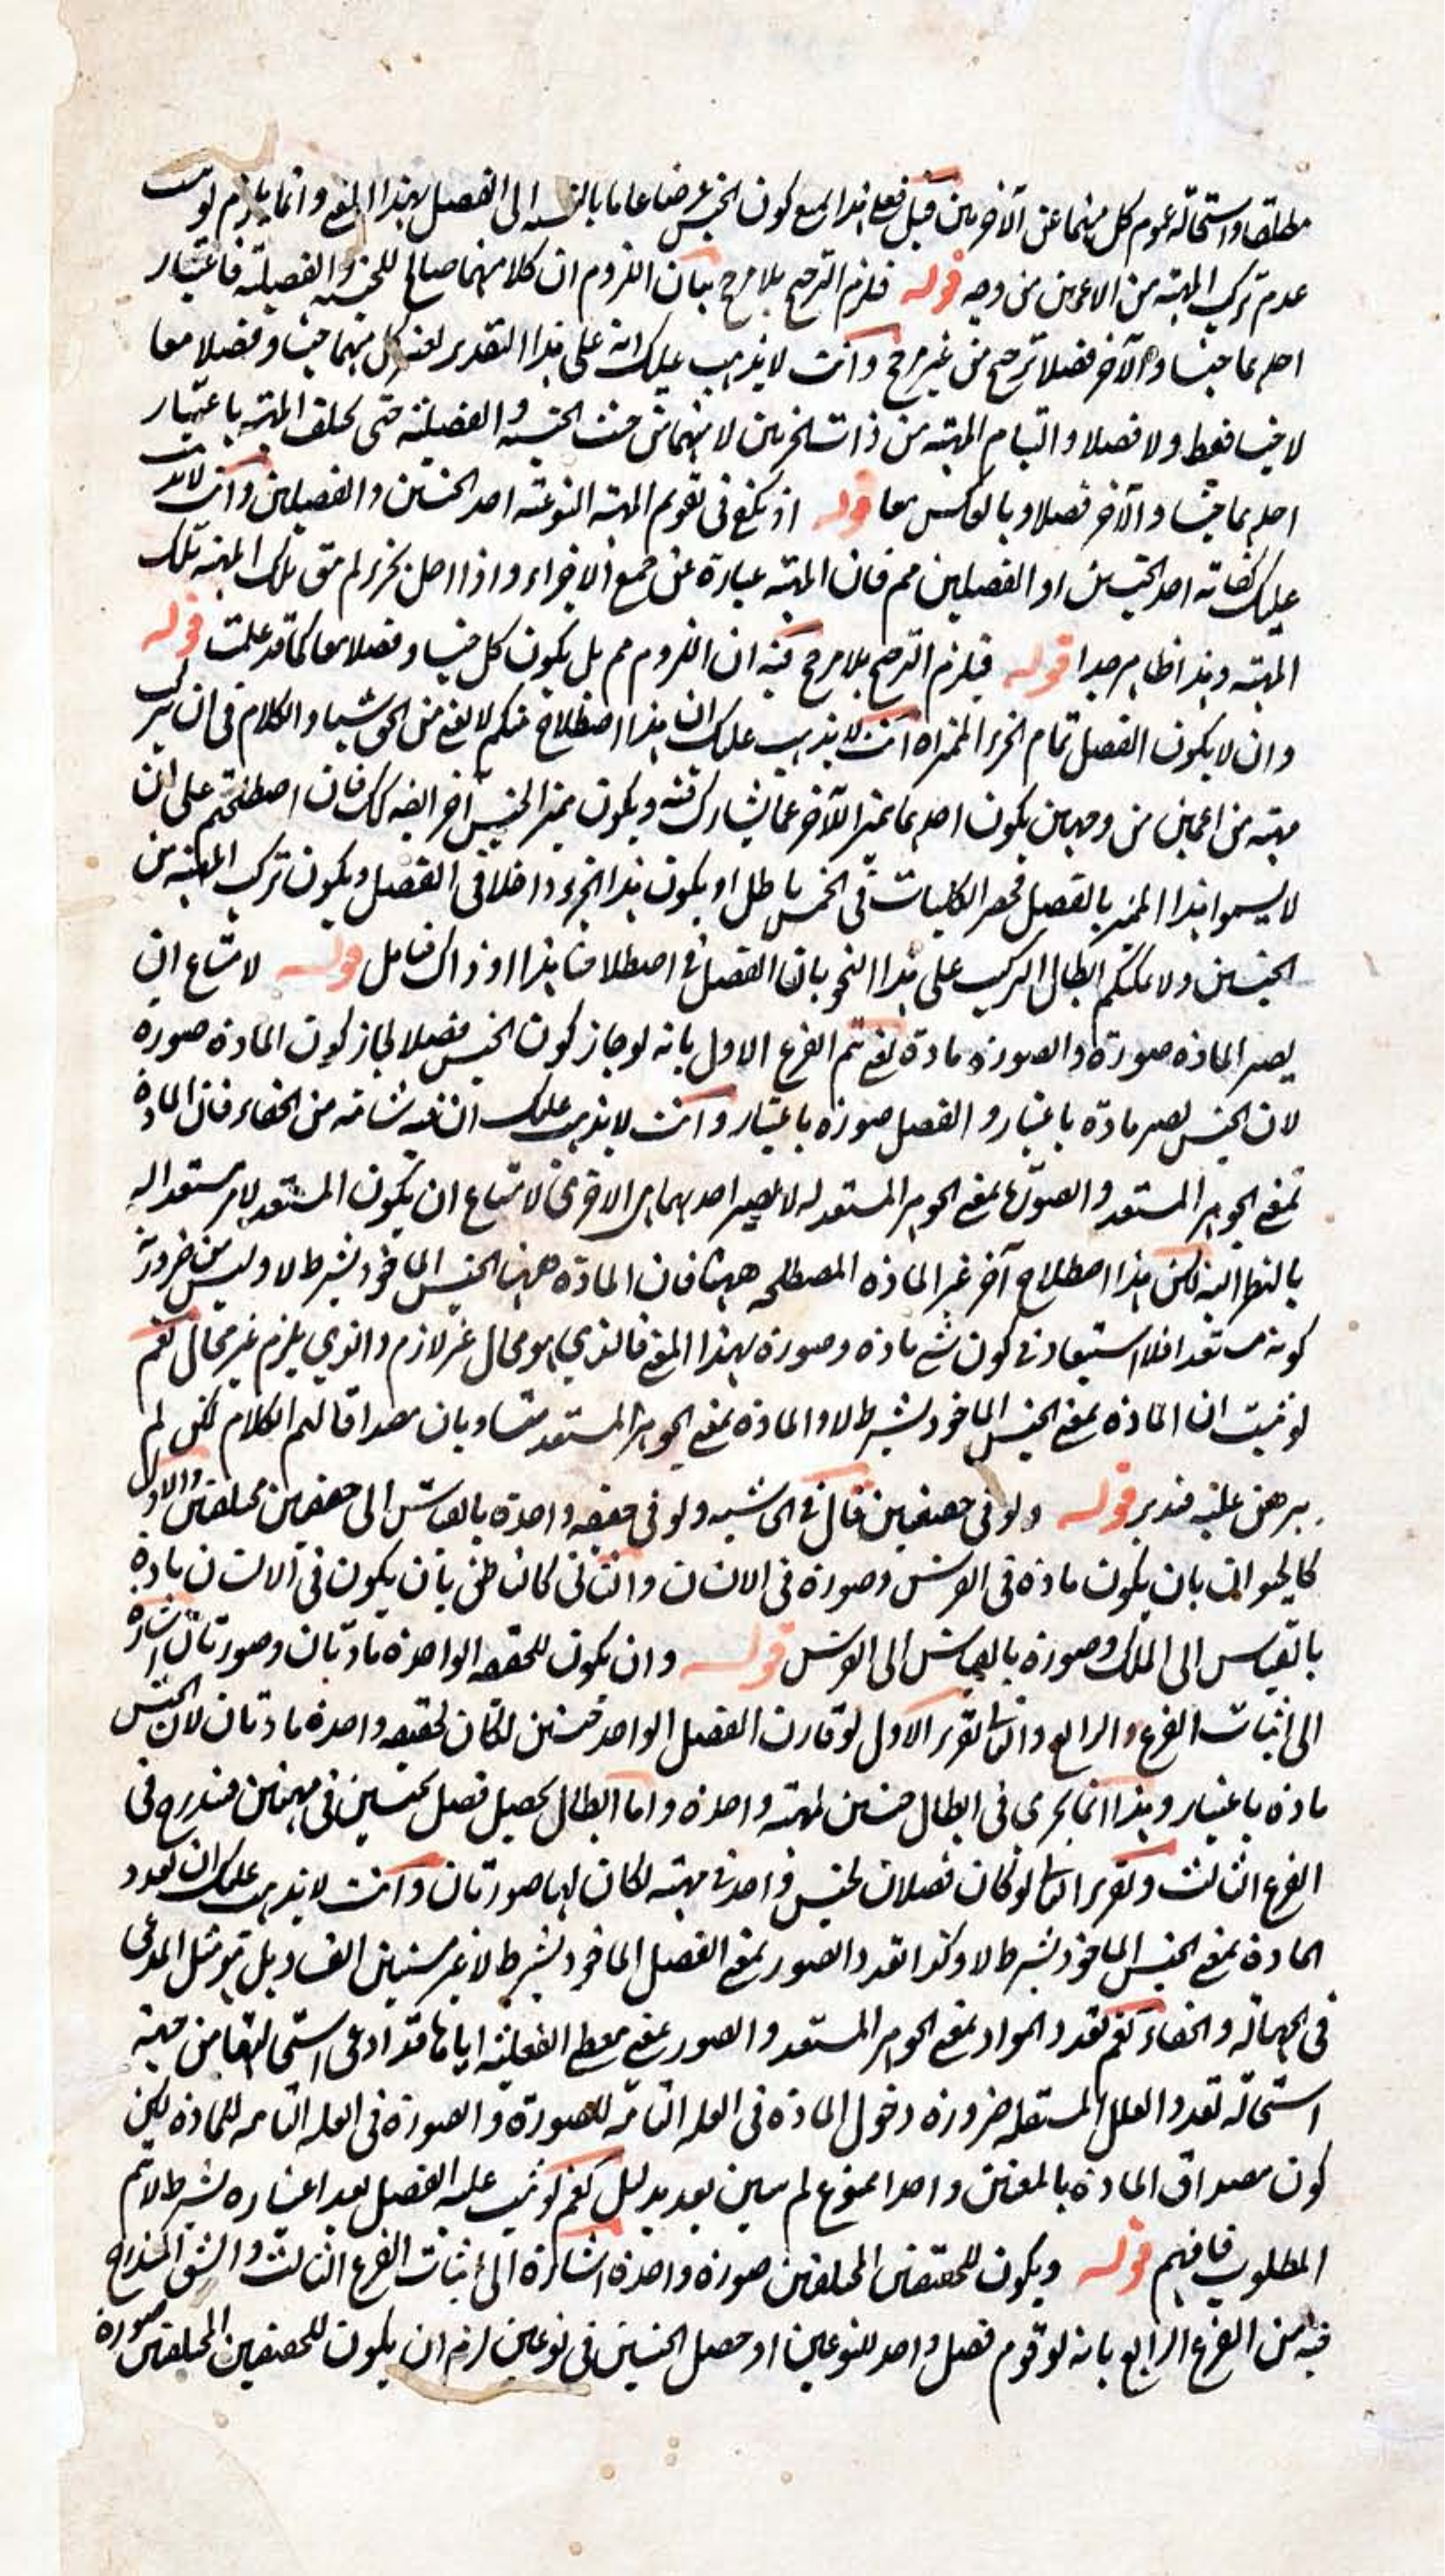 مطلقا واستحالة عموم كل منهما عن الآخر من قبل فعلى هذا لا يمتنع كون الجنس عرضا عاما بالنسبة الى الفصل بهذا المعنى وانما يلزم لو ثبت
عدم تركب المهية من الاعمين من وجه قوله فلزم الترجيح بلا مرجح بيان اللزوم ان كلا منهما صالح للجنسية والفصلية فاعتبار
احدهما جنسا والآخر فصلا ترجيح من غير مرجح وانت لا يذهب عليك انه على هذا التقدير كل منهما جنسا وفصلا معا
لا جنسا فقط ولا فصلا والتيام المهية من ذات الجزئين لا منهما من حيث الجنسية والفصلية حتى يختلف المهية باعتبار
احدهما جنسا والآخر فصلا وبالعكس معا قوله اذ يكفي في تقويم المهية النوعية احد الجنسين والفصلين وانت لا يذهب
عليك كفاية احد الجنسين او الفصلين مم فان المهية عبارة عن جميع الاجزاء واذا اخل بجزء لم يبق تلك المهية تلك
المهية وهذا ظاهر جدا قوله فيلزم الترجيح بلا مرجح فيه ان اللزوم مم بل يكون كل جنسا وفصلا معا كما قد علمت قوله
وان لا يكون الفصل تمام الجزء المميز اه انت لا يذهب عليك ان هذا اصطلاح منكم لا يغني من الحق شيئا والكلام في ان تركب
مهية من اعمين من وجه بان يكون احدهما مميزا للآخر عما يشاركه فيه ويكون مميز الجنس آخر ايضا كك فان اصطلحتم على ان
لا يسموا هذا المميز بالفصل فحصر الكليات في الخمس باطل او يكون هذا الجزء داخلا في الفصل ويكون تركب المهية من
الجنسين ولا يمكنكم ابطال التركب على هذا النحو بان الفصل في اصطلاحنا هذا او ذاك فتامل قوله لامتناع ان
يصير المادة صورة والصورة مادة يعني تم الفرع الاول بانه لو جاز كون الجنس فصلا لجاز كون المادة صورة
لان الجنس يصير مادة باعتبار والفصل صورة باعتبار وانت لا يذهب عليك ان فيه شائبة من الخفاء فان المادة
بمعنى الجوهر المستعد والصورة بمعنى الجوهر المستعد له لا يصير احدهما هي الاخرى لامتناع ان يكون المستعد لامر مستعدا له
بالنظر اليه لكن هذا اصطلاح آخر غير المادة المصطلحة ههنا فان المادة ههنا الجنس الماخوذ بشرط لا وليس من ضرورة
كونه مستعدا فلا استبعاد في كون شيء مادة وصورة بهذا المعنى فالذي هو محال غير لازم والذي يلزم غير محال نعم
لو ثبت ان المادة بمعنى الجنس الماخوذ بشرط لا والمادة بمعنى الجوهر المستعد متساويان مصداقا لتم الكلام لكن لم
يبرهن عليه فتدبر قوله ولو في حقيقتين قال في الحاشية ولو في حقيقة واحدة بالقياس الى حقيقتين مختلفتين والاول
كالحيوان بان يكون مادة في الفرس وصورة في الانسان والثاني كالناطق بان يكون في الانسان مادة
بالقياس الى الملك وصورة بالقياس الى الفرس قوله وان يكون للحقيقة الواحدة مادتان وصورتان اشارة
الى اثبات الفرع والرابع والثاني تقرير الاول لو قارن الفصل الواحد جنسين لكان لحقيقة واحدة مادتان لان الجنس
مادة باعتبار وهذا انما يجري في ابطال جنسين لمهية واحدة واما ابطال تحصيل فصل لجنسين في مهيتين فندرج في
الفرع الثالث وتقرير الثاني لو كان فصلان لجنس واحد في مهية لكان لها صورتان وانت لا يذهب عليك ان تعدد
المادة بمعنى الجنس الماخوذ بشرط لا وكذا تعدد الصور بمعنى الفصل الماخوذ بشرط لا غير مستبين الفساد بل هو مثل المدعى
في الجهالة والخفاء نعم تعدد المواد بمعنى الجوهر المستعد والصور بمعنى معطي الفعلية اياها قد ادعى استحالتها من جهة
استحالة تعدد العلل المستقلة ضرورة دخول المادة في العلة التامة للصورة والصورة في العلة التامة للمادة لكن
كون مصداق المادة بالمعنيين واحدا ممنوع لم يبين بعد بدليل نعم لو ثبت علية الفصل بعد اعتباره بشرط لا تم
المطلوب فافهم قوله ويكون للحقيقتين المختلفتين صورة واحدة اشارة الى اثبات الفرع الثالث والشق المندرج
فيه من الفرع الرابع بانه لو قوم فصل واحد للنوعين او حصل الجنسين في نوعين لزم ان يكون للحقيقتين المختلفتين صورة